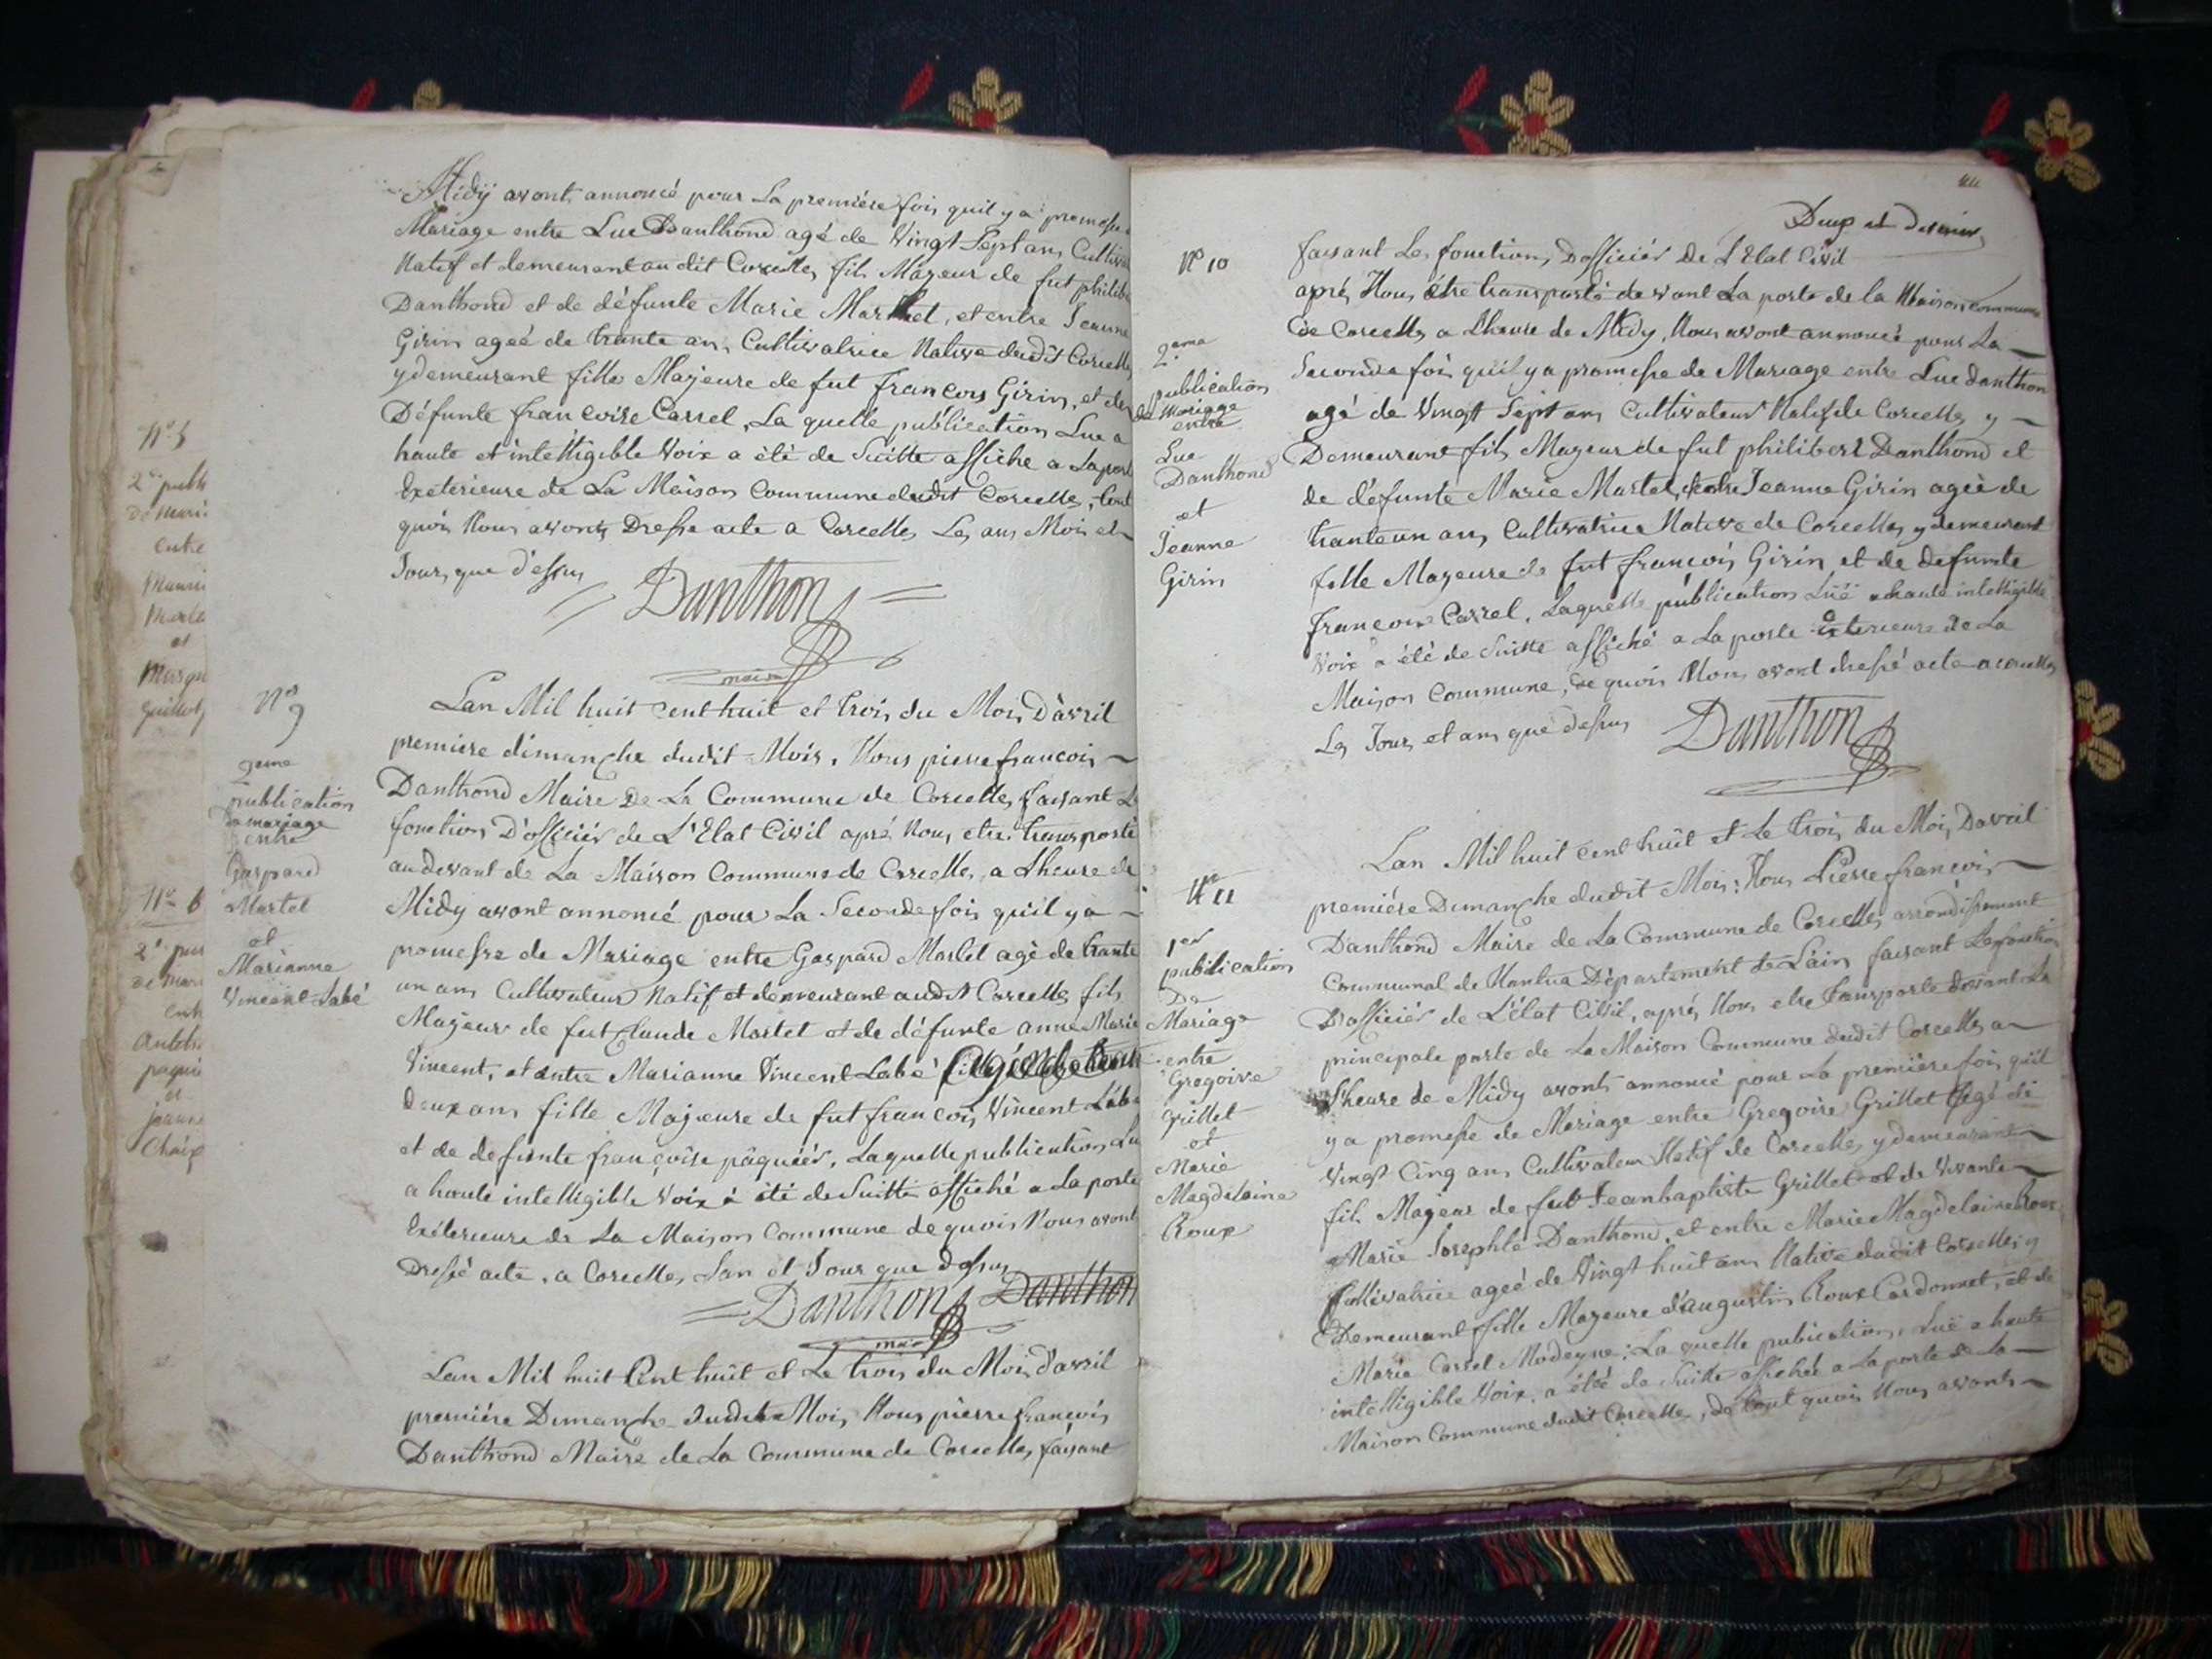 Midÿ avont annoncé pour La premiére fois quil y a promesse
Mariage entre Luc Danthond agé de Vingt Sept ans Cultiva
Natif et demeurant au dit Corcelles fils Mageur de fut philib
Danthond et de défunte Marie Martel, et entre Jeanne
Girin ageé de trante ans, Cultivatrice Native dudit Corcelles
y demeurant fille Majeure de fut francois Girin, et de
Défunte francoise Carrel, La quelle publication Lue a
haute et intélligible Voix a été de Suitte affiché a La port
Exeterieure de La Maison Commune dudit Corcelle, tout
quoi Nous avons Dressé acte a Corcelles Les ans Mois et
Jours que déssus
Danthon
maire
N° 9
2eme
publication
de mariage
entre
Gaspard
Martel
et
Marianne
Vincent Labé
Lan Mil huit cent huit et trois du Mois Davril
premiere dimanche dudit Mois. Nous pierre francois
Danthond Maire De La Commune de Corcelles faisant Le
fonction D'officiér de L'Etat Civil aprés Nous etre transporté
au devant de La Maison Commune de Corcelles a Lheure de
Midy avont annoncé pour La Seconde fois quil y a
promesse de Mariage entre Gaspard Martel agé de trante
un ans Cultivateur Natif et demeurant audit Corcelles fils
Majeur de fut Claude Martel et de défunte anne Marie
Vincent, et entre Marianne Vincent Labé
Deux ans fille Majeure de fut francois Vincent Labé
et de defunte françoise pâquéér, Laquelle publication Lu
a haute intelligible Voix à été de Suitte affiché a La porte
Exéterieure de La Maison Commune de quoi Nous avont
Dressé acte, a Corcelles Lan et Jour que dessus
Danthon Danthon
maire
Lan Mil huit Cent huit et Le trois du Mois Davril
premiére Dimanche dudit Mois Nous pierre francois
Danthond Maire de La Commune de Corcelles faisant
N° 5
2e publ
de mari
entre
Mauri
Marte
et
Margu
N° 6
de mar
ent
et
jeanne
Deux et dernier
N° 10
2eme
publication
de Mariage
entre
Luc
Danthond
et
Jeanne
Girin
faisant Les fonctions Dofficiér De L'Etat Civil
aprés Nous étre transporté devant La porte de la Maison commune
de Corcelles a Lheure de Midy, Nous avont annoncé pour La
Seconde fois quil y a promesse de Mariage entre Luc danthon
agé de Vingt Sept ans Cultivateur Natif de Corcelles y
Demeurant fils Mageur de fut philibert Danthond et
de défunte Marie Martel, et entre Jeanne Girin ageé de
trante un ans Cultivatrice Native de Corcelles y demeurant
fille Mageure de fut francois Girin et de defunte
francoise Carrel, Laquelle publication Lüë a haute intelligible
Voix a été de Suitte affiché a La porte Exterieure de La
Maison Commune, de quoi Nous avont dressé acte a corcelles
Les Jours et ans que dessus
Danthon
N° 11
1er
publication
De
Mariage
entre
Gregoire
Grillet
et
Marie
Magdelaine
Roux
Lan Mil huit cent huit et Le trois du Mois Davril
premiére Dimanche dudit Mois: Nous Pierre francois
Danthond Maire de La Commune de Corcelles arrondissement
Communal de Nantua Département de Lain faisant Les fonction
D'officiér de L'état Civil, aprés Nous etre transporté devant La
principale porte de La Maison Commune dudit Corcelles a
Lheure de Midy avont annoncé pour La premiére fois quil
y a promesse de Mariage entre Gregoire Grillet Agé de
Vingt Cinq ans Cultivateur Natif de Corcelles y demeurant
fils Mageur de fut Jean baptiste Grillet et de Vivante
Marie Josephte Danthond, et entre Marie Magdelaine Roux
Cultivatrice ageé de Vingt huit ans Native dudit Corcelles y
Demeurant fille Mageure d'augustin Roux Cardonnet, et de
Marie Carrel Modeyne: La quelle pubication, Luë a haute
intelligible Voix, a été de Suitte affichée a La porte de La
Maison Commune dudit Corcelles, de tout quoi Nous avont